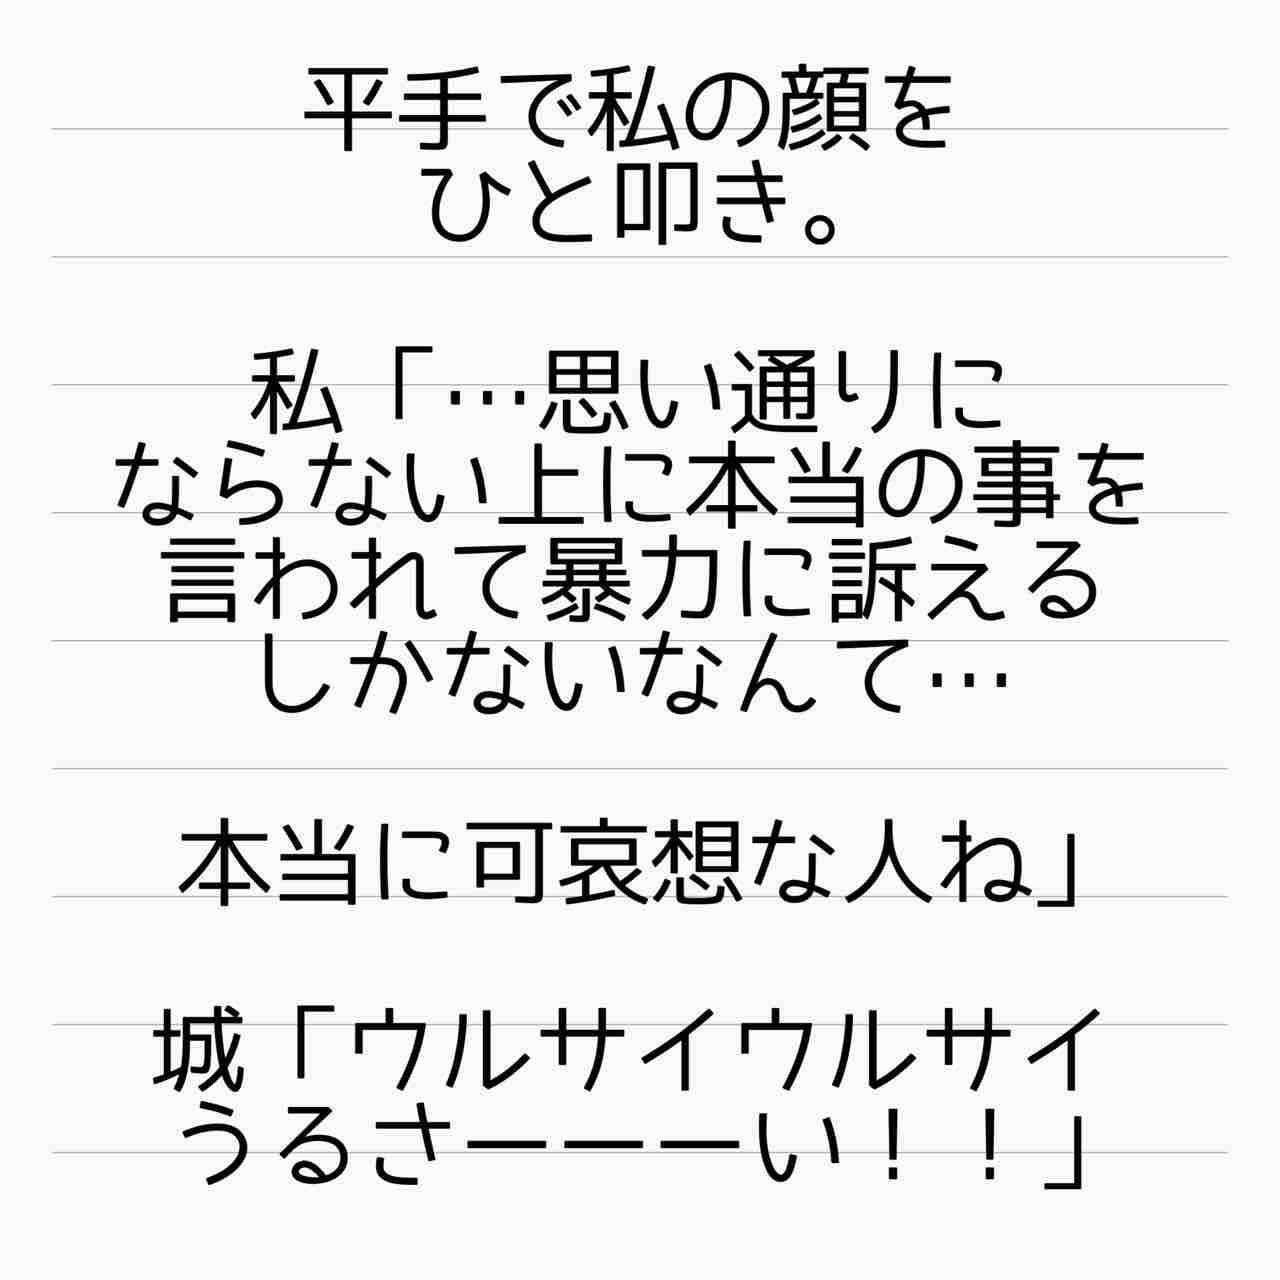 平手で私の顔を
ひと叩き。
私「…思い通りに
ならない上に本当の事を
言われて暴力に訴える
しかないなんて…
本当に可哀想な人ね」
城「ウルサイウルサイ
うるさーーーい！！」